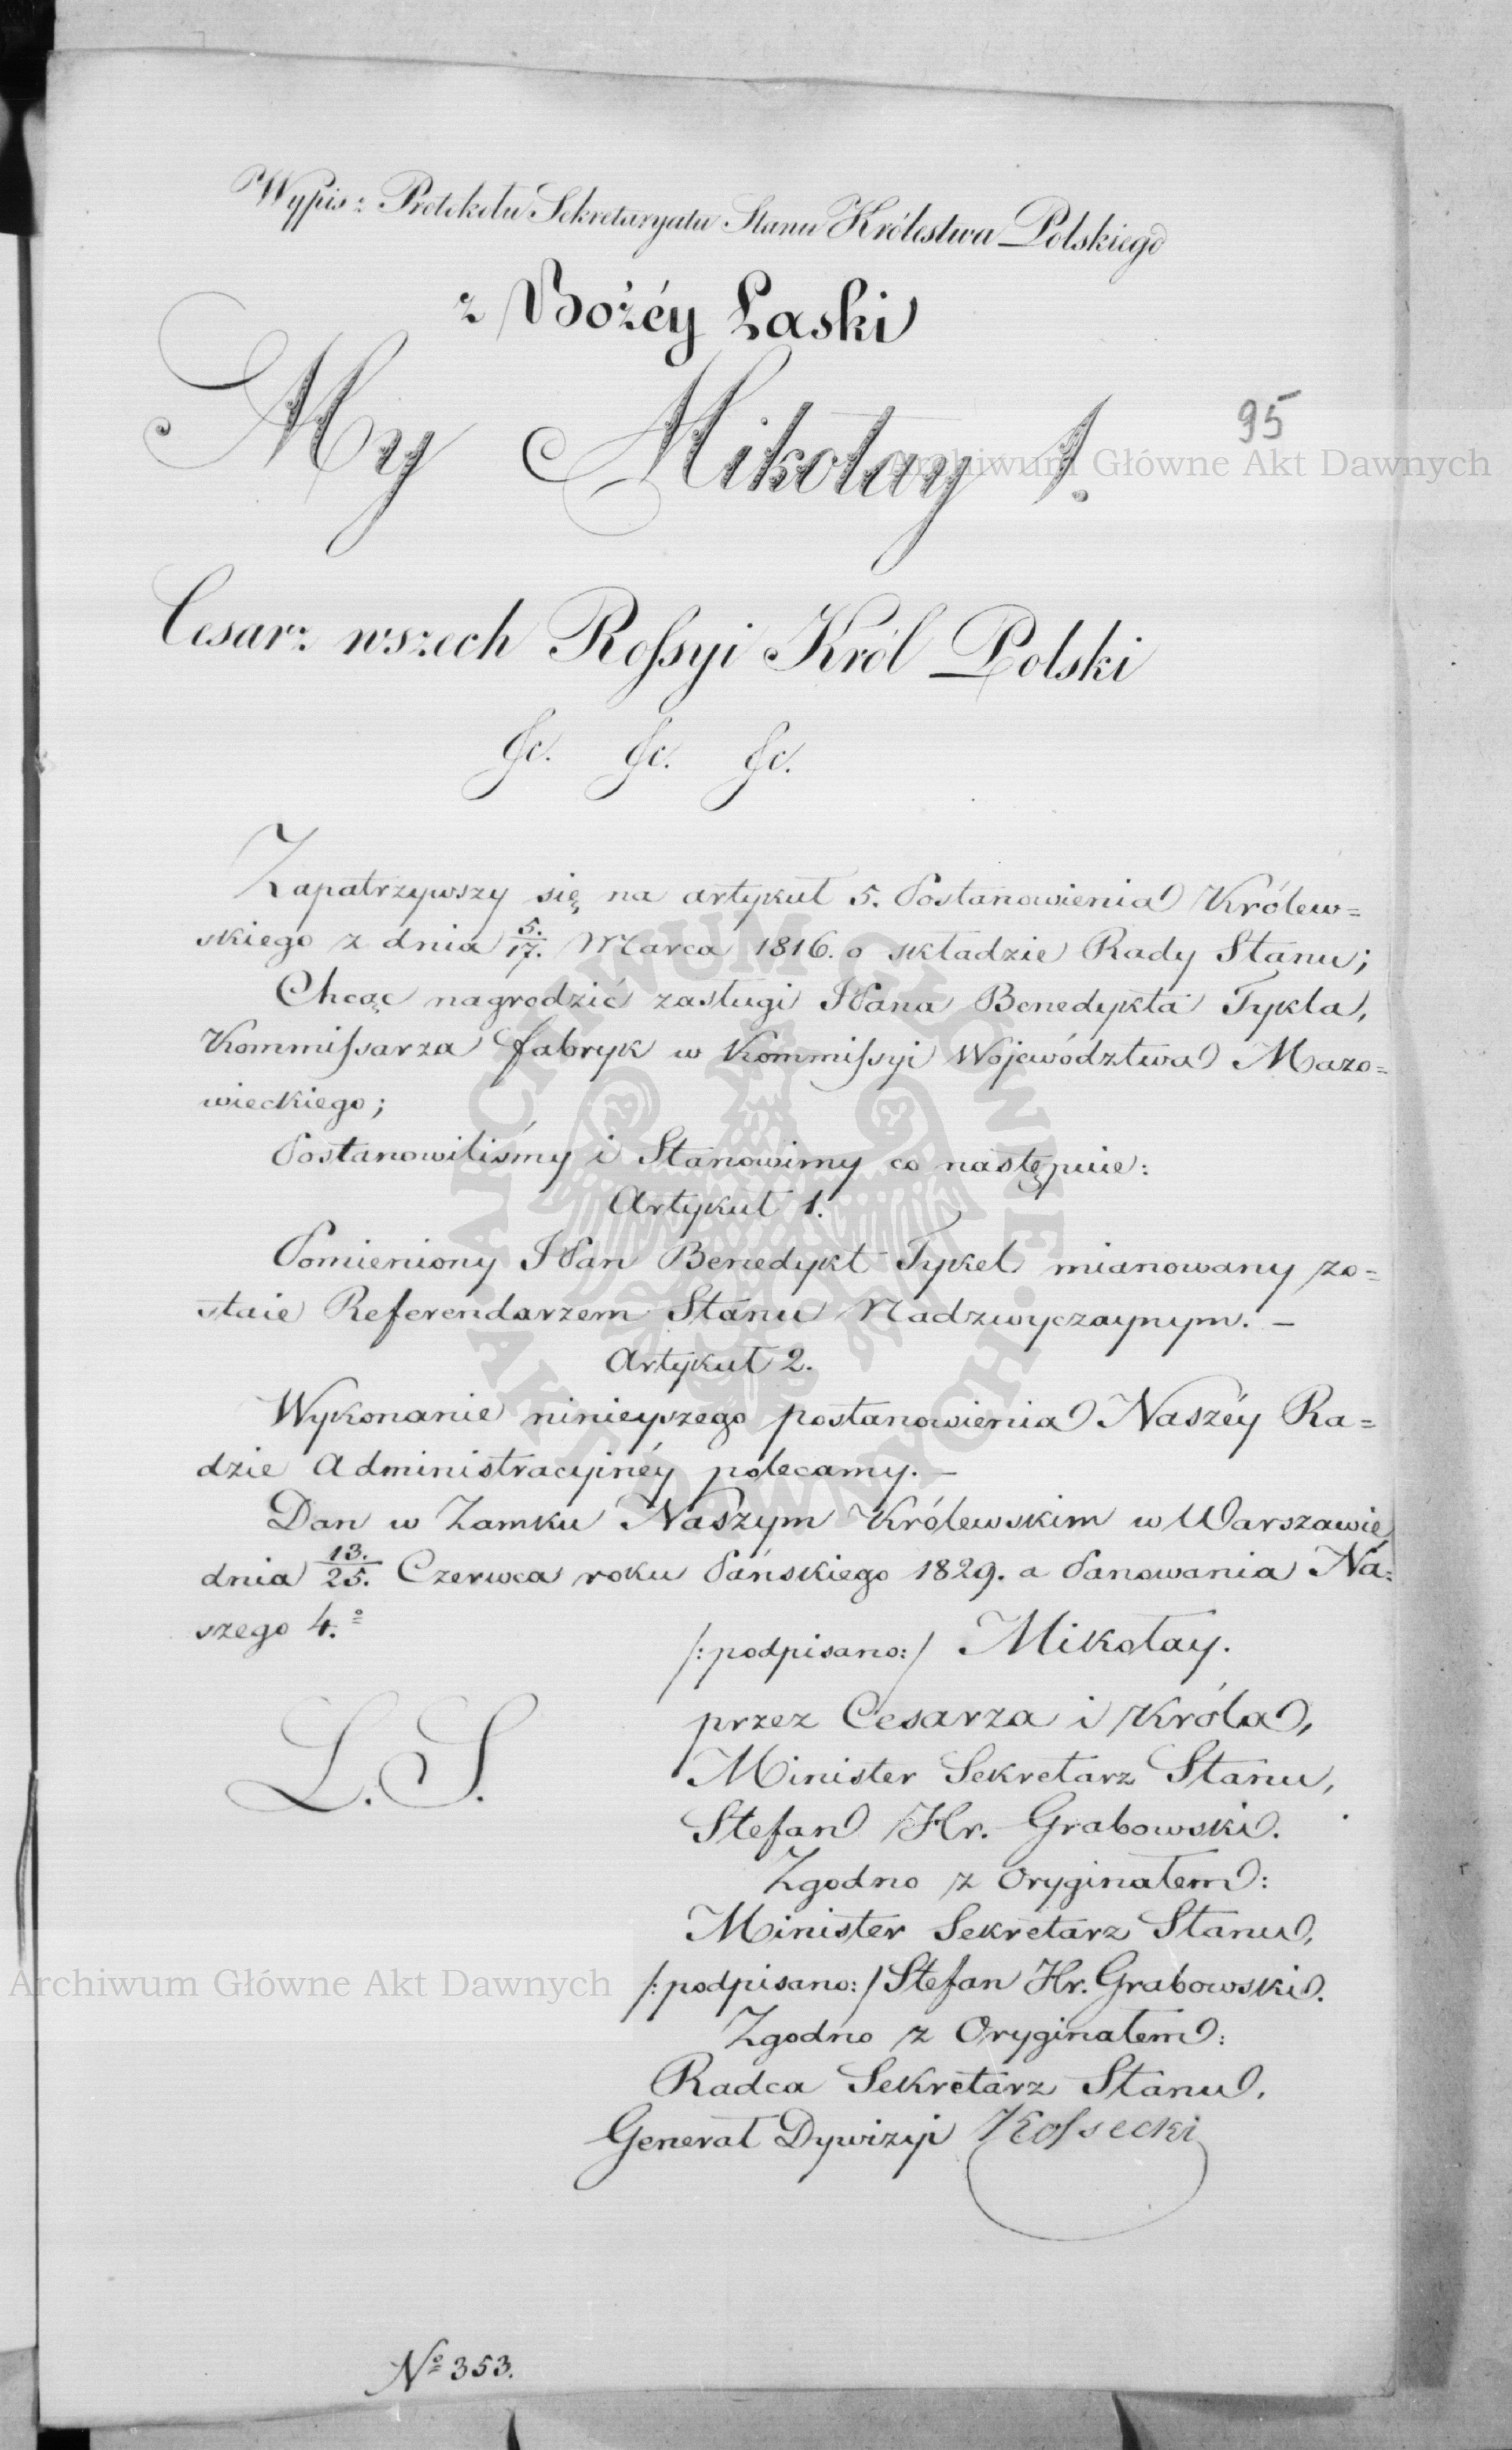 Wypis z Protokołu Sekretaryatu Stanu Królestwa Polskiego
z Bożéy Łaski
My Mikołay I.
95
Archiwum Główne Akt Dawnych
Cesarz wszech Rossyi Król Polski
&c. &c. &c.
Zapatrzywszy się na artykuł 5. Postanowienia Królew=
skiego z dnia 5./17. Marca 1816. o składzie Rady Stanu;
Chcąc nagrodzić zasługi JPana Benedykta Tykla,
Kommissarza fabryk w Kommissyi Województwa Mazo=
wieckiego;
Postanowiliśmy i Stanowimy co następuie:
Artykuł 1.
Pomieniony JPan Benedykt Tykel mianowany zo=
staie Referendarzem Stanu Nadzwyczaynym. –
Artykuł 2.
Wykonanie ninieyszego postanowienia Naszéy Ra=
dzie Administracyinéy polecamy. –
Dan w Zamku Naszym Królewskim w Warszawie
dnia 13./25. Czerwca roku Pańskiego 1829. a Panowania Na=
szego 4.º
/:podpisano:/ Mikołay.
przez Cesarza i Króla,
L.S.
Minister Sekretarz Stanu,
Stefan Hr. Grabowski.
Zgodno z Oryginałem:
Minister Sekretarz Stanu,
Archiwum Główne Akt Dawnych
/:podpisano:/ Stefan Hr. Grabowski.
Zgodno z Oryginałem:
Radca Sekretarz Stanu,
Generał Dywizyi Kossecki
Nº 353.
ARCHIWUM GŁÓWNE AKT DAWNYCH